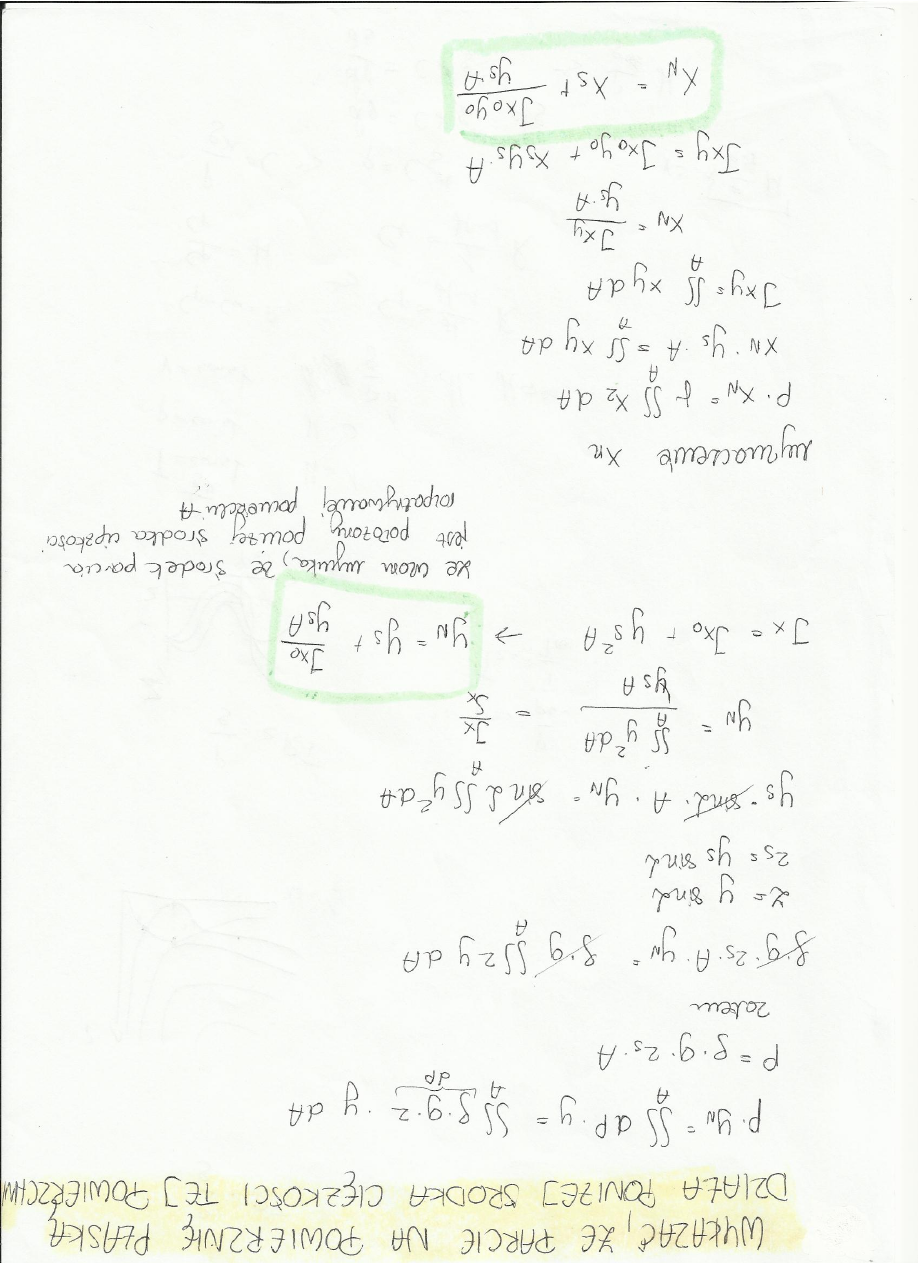 WYKAZAĆ, ŻE PARCIE NA POWIERZNIĘ PŁASKĄ
DZIAŁA PONIŻEJ ŚRODKA CIĘŻKOŚCI TEJ POWIERZCHNI
P · yN = ∬A dP · y = ∬A ρ·g·z · y dA
dP
P = ρ·g·zs·A
zatem
ρ·g·zs·A·yN = ρ·g ∬A z y dA
z = y sinα
zs = ys sinα
ys · sinα · A · yN = sinα ∬A y²dA
yN = ∬A y²dA / ysA = Jx / Sx
Jx = Jxo + ys²A → yN = ys + Jxo / ysA
ze wzoru wynika, że środek parcia
jest położony poniżej środka ciężkości
rozpatrywanej powierzchni A
wyznaczenie xn
P · xN = γ ∬A xz dA
xN · ys · A = ∬A xy dA
Jxy = ∬A xy dA
xN = Jxy / ys·A
Jxy = Jxoyo + xsys·A
XN = xs + Jxoyo / ys·A